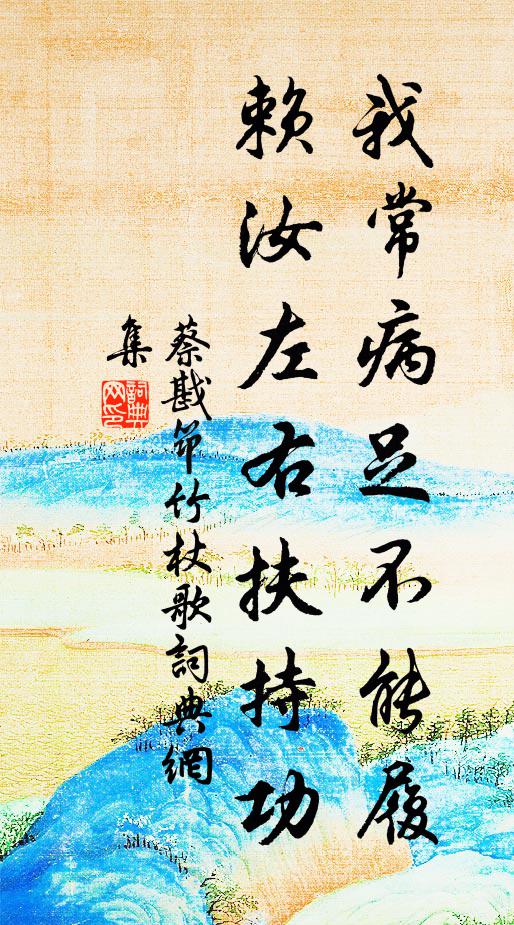 我常病足不能履
賴汝左右扶持功
蔡戡筇竹杖歌詞典網
集
詞典網印